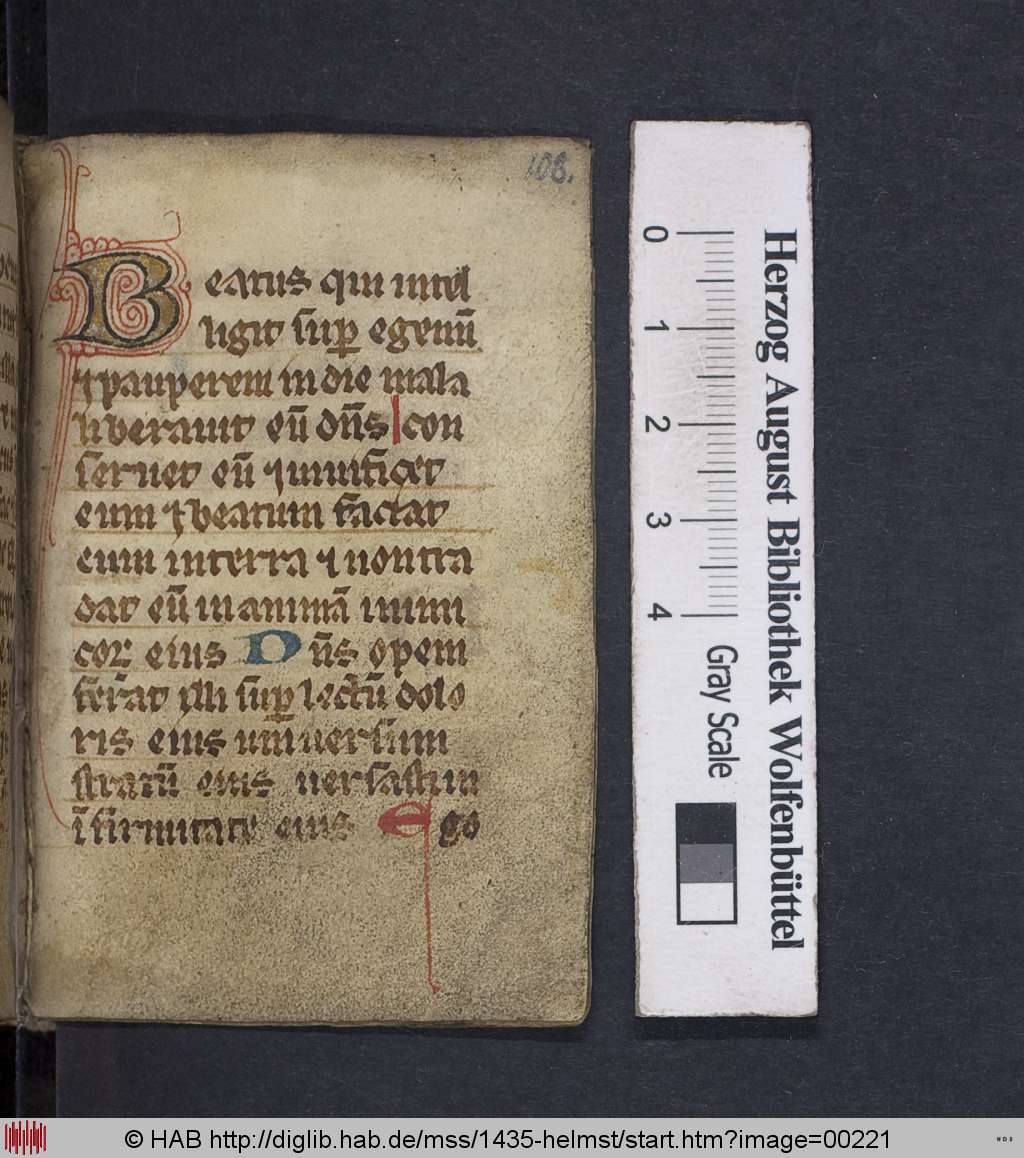 108.
Beatus qui intel
ligit sup egenū
⁊ pauperem in die mala
liberauit eū dn̄s con
seruet eū ⁊ uiuificet
eum ⁊ beatum faciat
eum in terra ⁊ non tra
dat eū in animā inimi
coꝝ eius Dn̄s opem
ferat illi suꝑ lectū dolo
ris eius uniuersum
stratū eius uersasti in
īfirmitate eius Ego
0
1
2
3
4
Gray Scale
Herzog August Bibliothek Wolfenbüttel
© HAB http://diglib.hab.de/mss/1435-helmst/start.htm?image=00221